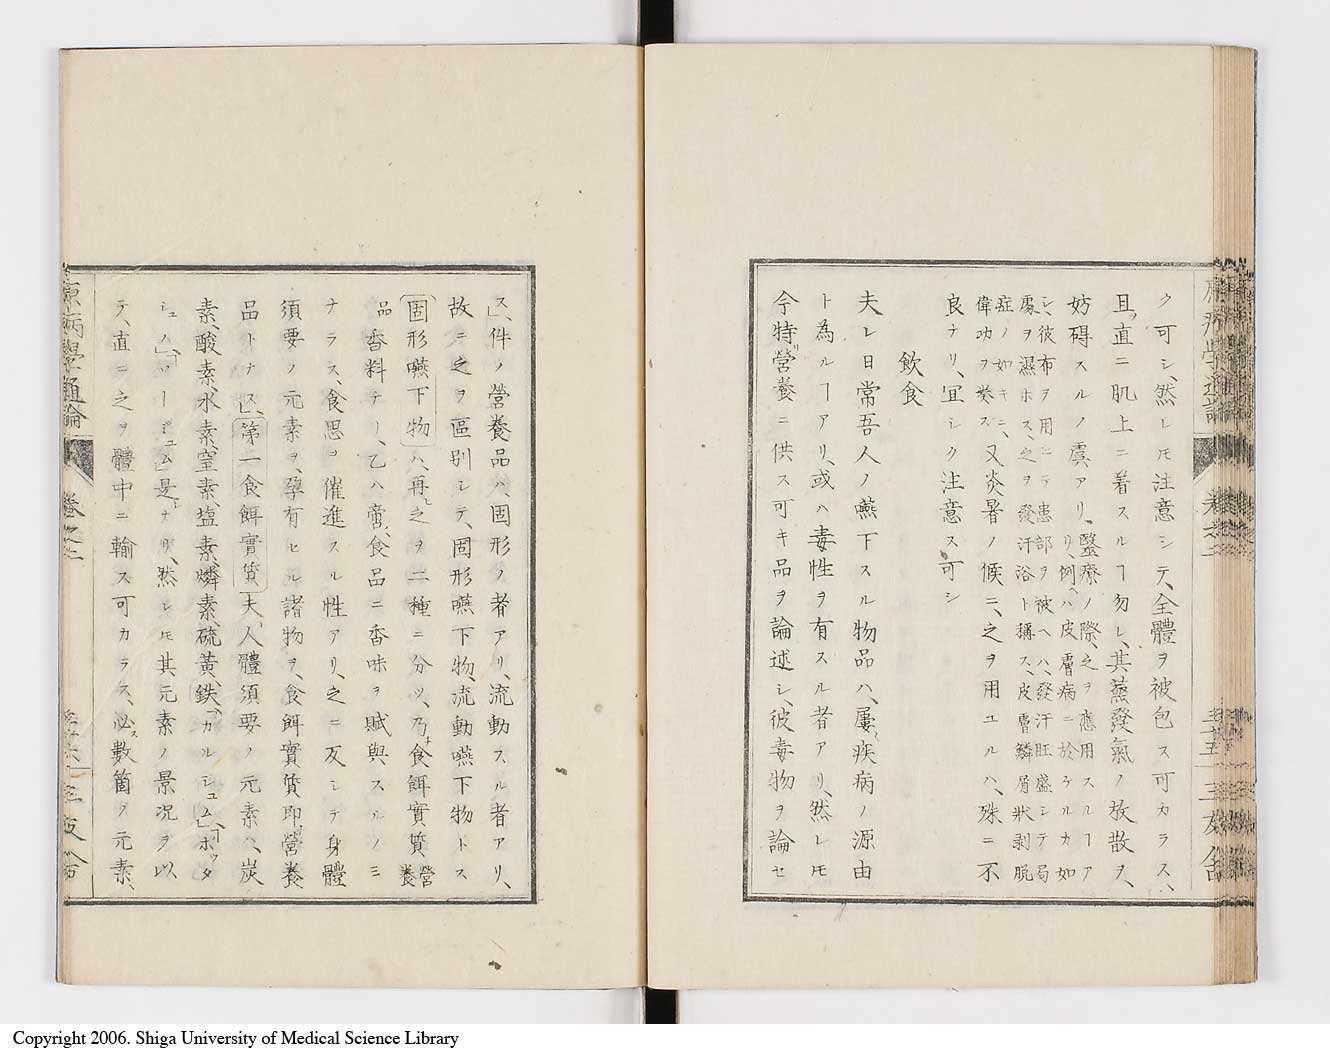 ク可シ、然レㇳモ注意シテ、全體ヲ被包ス可カラス、
且、直ニ肌上ニ着スルヿ勿レ、其蒸發氣ノ放散ヲ、
妨碍スルノ虞アリ、醫療ノ際、之ヲ應用スルヿア
リ、例ヘハ皮膚病ニ於ケルカ如
シ、彼布ヲ用ヒテ患部ヲ被ヘハ、發汗旺盛シテ局
處ヲ濕ホス、之ヲ發汗浴ト稱ス、皮膚鱗屑狀剥脱
症ノ如キニ、
偉功ヲ奏ス 又炎暑ノ候ニ、之ヲ用ユルハ、殊ニ不
良ナリ、冝シク注意ス可シ
飲食
夫レ日常吾人ノ嚥下スル物品ハ、屢疾病ノ源由
ト為ルヿアリ、或ハ毒性ヲ有スル者アリ、然レㇳモ
今特ニ營養ニ供ス可キ品ヲ論述シ、彼毒物ヲ論セ
ス」、件ノ營養品ハ、固形ノ者アリ、流動スル者アリ、
故ニ之ヲ區別シテ、固形嚥下物、流動嚥下物トス
固形嚥下物ハ、再ヒ之ヲ二種ニ分ツ、乃チ食餌實質營養
品香料ナリ、乙ハ啻ニ食品ニ香味ヲ賦與スルノミ
ナラス、食思ヲ催進スル性アリ、之ニ反シテ身體
須要ノ元素ヲ、孕有セル諸物ヲ、食餌實質即チ營養
品トナス」、第一食餌實質夫人體須要ノ元素ハ、炭
素、酸素、水素、窒素、塩素、燐素、硫黄、鉄、カルシュム」、ポッタ
シュム」、ソーヂュム」是ナリ、然レㇳモ其元素ノ景况ヲ以
テ、直ニ之ヲ體中ニ輸ス可カラス、必ス數箇ノ元素、
原病學通論
卷之二
三友舎
Copyright 2006. Shiga University of Medical Science Library